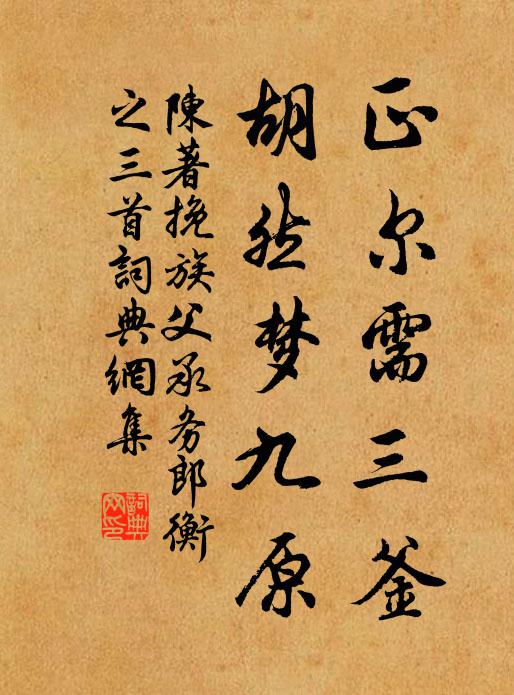 正尔需三釜
胡然梦九原
陳著挽族父承务郎衡
之三首詞典網集
詞典網印